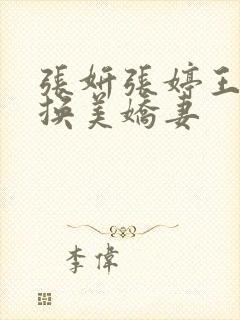 張妍張婷王
換美嬌妻
李偉